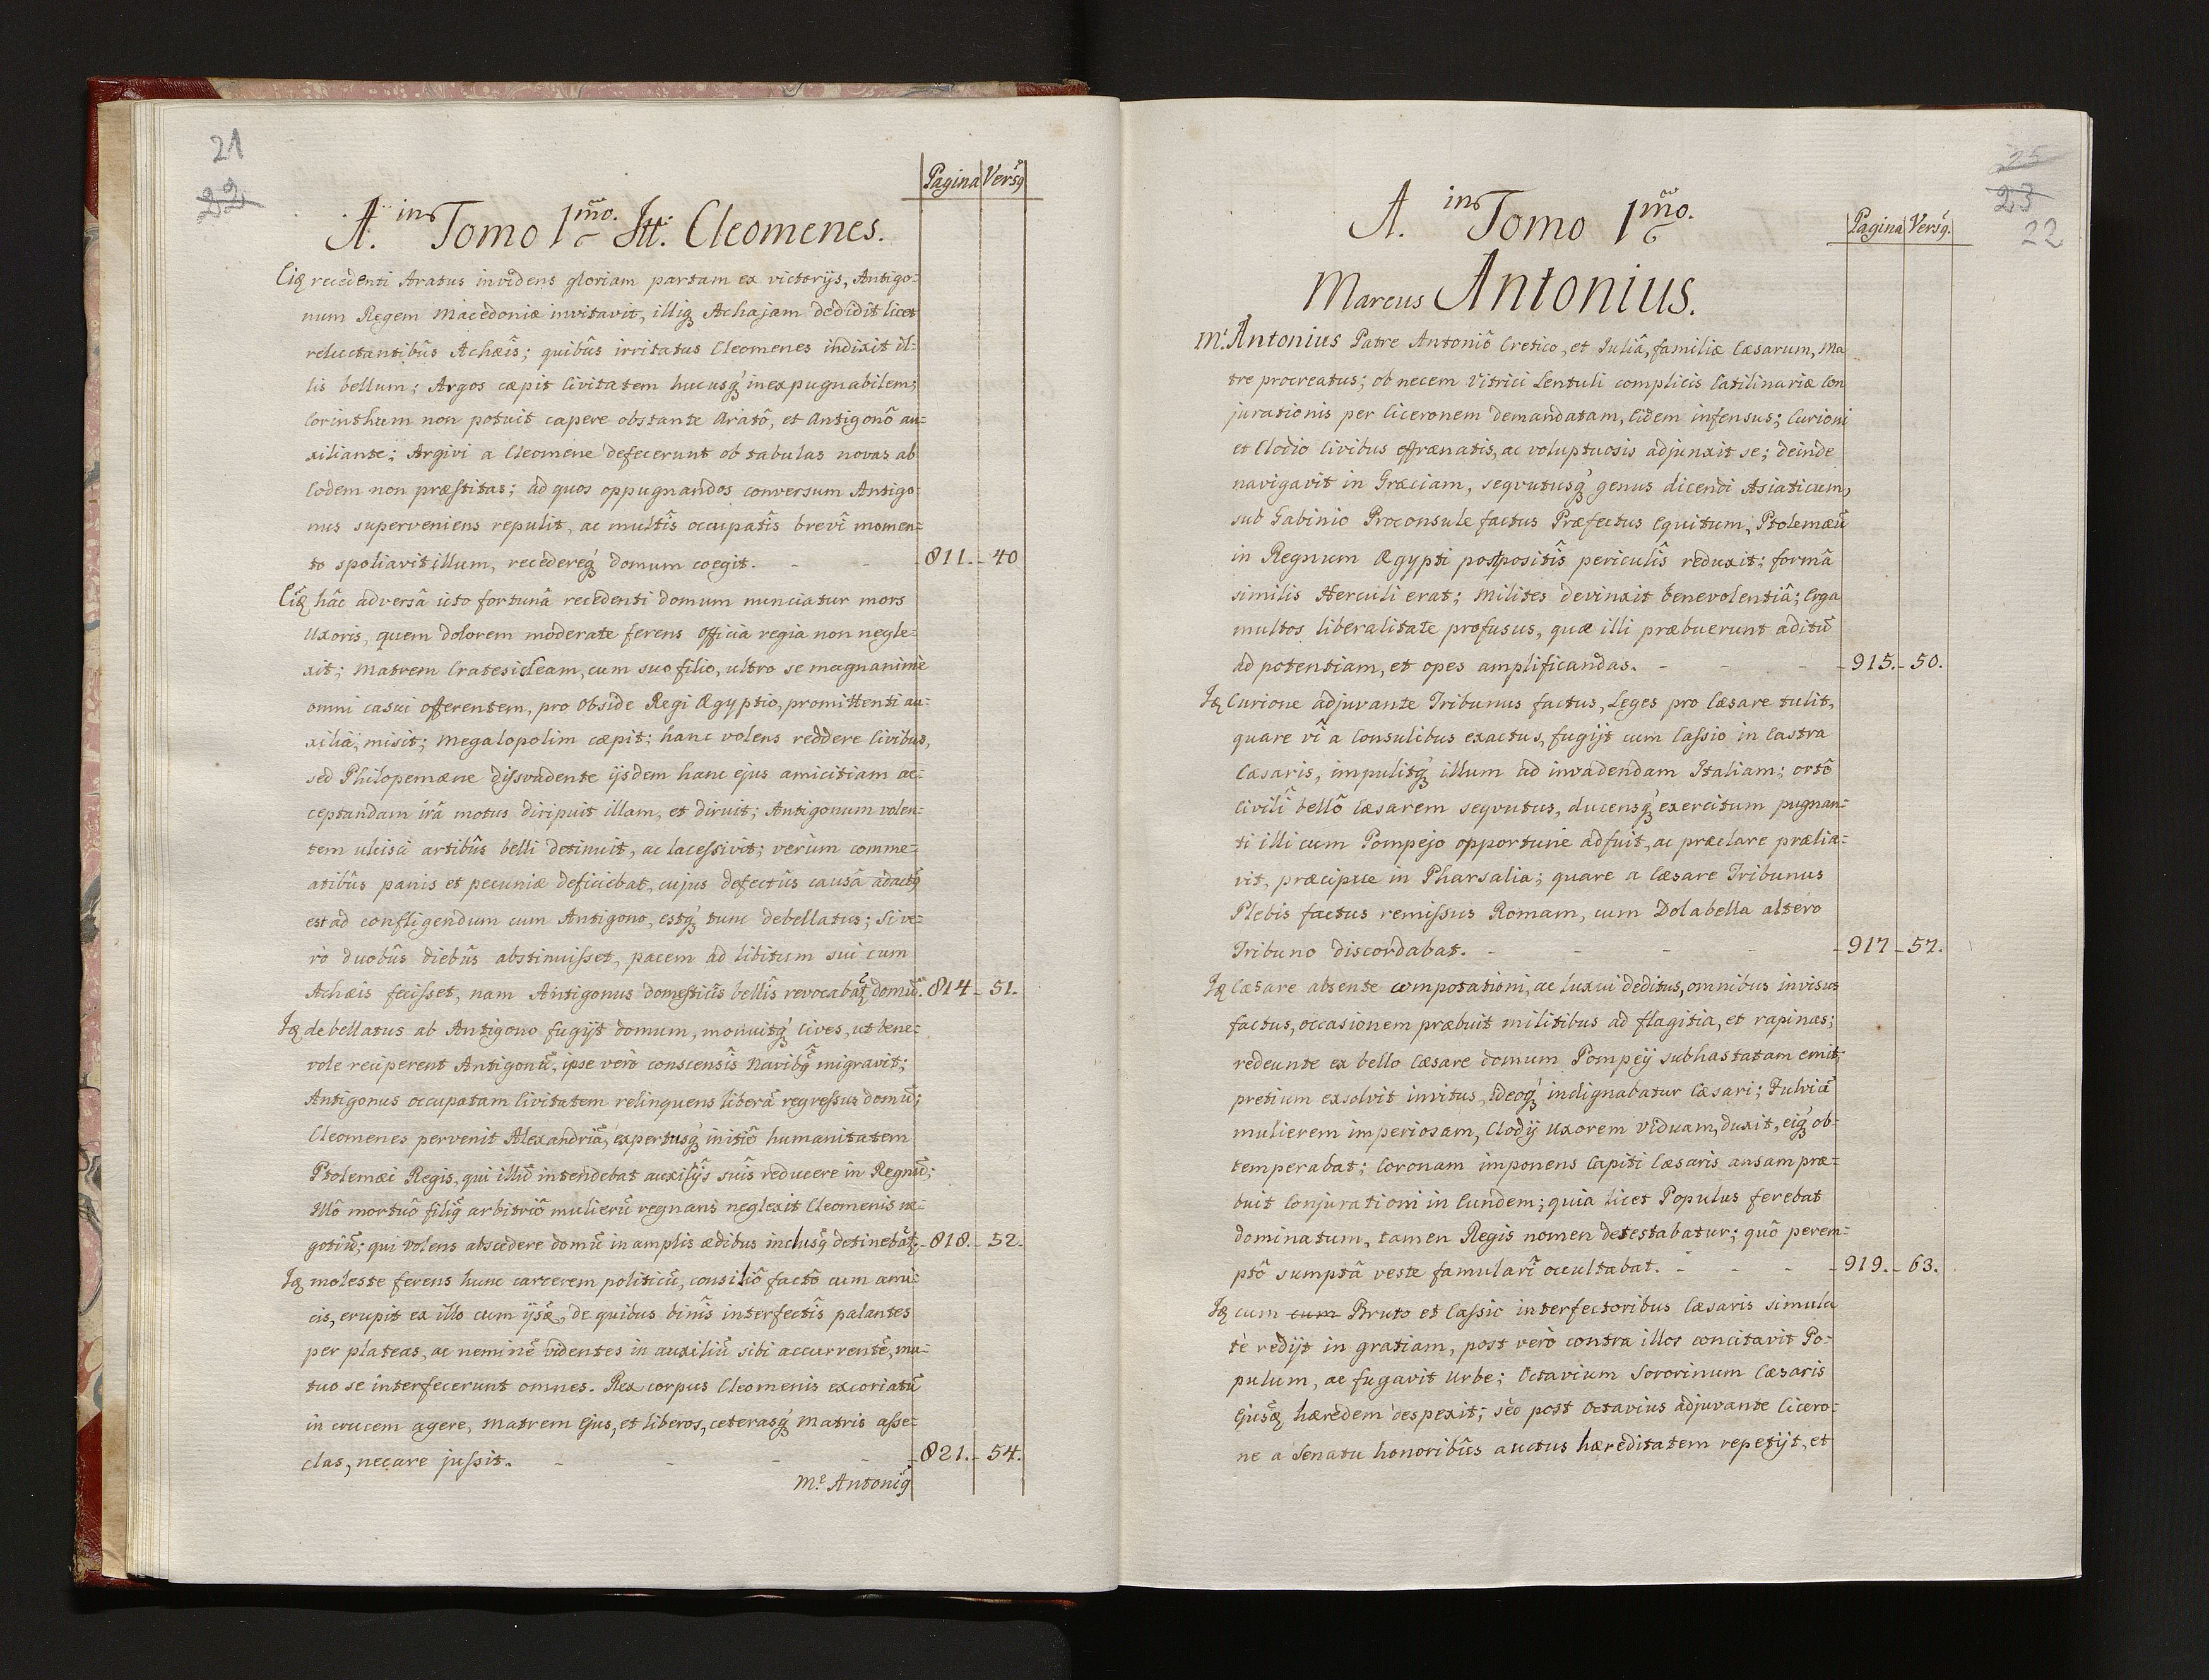 21
22
Pagina Versq
A. in Tomo 1mo. Itt. Cleomenes.
Eiq recedenti Aratus invidens gloriam partam ex victorijs, Antigo-
num Regem Macedoniæ invitavit, illiq Achajam dedidit licet
reluctantibûs Achæîs; quibûs irritatus Cleomenes indixit il-
lis bellum; Argos cæpit Civitatem hucusq inexpugnabilem;
Corinthum non potuit capere obstante Aratô, et Antigonô au-
xiliante; Argivi a Cleomene defecerunt ob tabulas novas ab
Eodem non præstitas; ad quos oppugnandos conversum Antigo-
nus superveniens repulit, ac multîs occupatîs brevî momen-
to spoliavit illum, recedereq domum coegit. - - - 811. - 40
Eiq hâc adversâ icto fortunâ recedenti domum nunciatur mors
Uxoris, quem dolorem moderate ferens officia regia non negle-
xit; Matrem Cratesicleam, cum suo filio, ultro se magnanimè
omni casui offerentem, pro obside Regi Ægyptio, promittenti au-
xilia, misit; Megalopolim cæpit; hanc volens reddere Civibus,
sed Philopemæne dissvadente ijsdem hanc ejus amicitiam ac-
ceptandam irâ motus diripuit illam, et diruit; Antigonum volen-
tem ulcisci artibûs belli detinuit, ac lacessivit; verùm comme-
atibûs panis et pecuniæ deficiebat, cujus defectûs causâ adactq
est ad confligendum cum Antigono, estq tunc debellatus; Si ve-
rò duobûs diebûs abstinuisset, pacem ad libitum sui cum
Achæis fecisset, nam Antigonus domesticîs bellîs revocabat domũ. 814 - 51.
Iq debellatus ab Antigono fugijt domum, monuitq Cives, ut bene-
vole reciperent Antigonũ, ipse verò conscensîs Navibq migravit;
Antigonus occupatam Civitatem relinquens liberã regressus domũ;
Cleomenes pervenit Alexandriã, expertusq initiô humanitatem
Ptolemæi Regis, qui illũ intendebat auxilijs suîs reducere in Regnũ;
Illô mortuô filiq arbitriô mulierũ regnans neglexit Cleomenis ne-
gotiũ; qui volens abscedere domũ in amplis ædibus inclusq detinebat. - 818. - 52.
Iq moleste ferens hunc carcerem politicũ, consiliô factô cum ami-
cis, erupit ex illo cum ijsq, de quibus binîs interfectîs palantes
per plateas, ac neminẽ videntes in auxiliũ sibi accurrentẽ, mu-
tuo se interfecerunt omnes. Rex corpus Cleomenis excoriatũ
in crucem agere, Matrem Ejus, et liberos, ceterasq Matris asse-
clas, necare jussit. - - - - 821. - 54.
M. Antoniq
25
23
22
A. in Tomo 1mo.
Pagina Versq.
Marcus Antonius.
M. Antonius Patre Antoniô Cretico, et Juliâ, familiæ Cæsarum, Ma
tre procreatus; ob necem Vitrici Lentuli complicis Catilinariæ Con
jurationis per Ciceronem demandatam, Eidem infensus; Curioni
et Clodio Civibus effrænatis, ac voluptuosis adjunxit se; deinde
navigavit in Græciam, seqvutusq genus dicendi Asiaticum,
sub Gabinio Proconsule factus Præfectus Equitum, Ptolemæũ
in Regnum Ægypti postpositîs periculîs reduxit: formâ
similis Herculi erat; Milites devinxit benevolentiâ; Erga
multos liberalitate profusus, quæ illi præbuerunt aditũ
ad potentiam, et opes amplificandas. - - - 915. - 50.
Iq Curione adjuvante Tribunus factus, Leges pro Cæsare tulit,
quare vî a Consulibus exactus, fugijt cum Cassio in Castra
Cæsaris, impulitq illum ad invadendam Italiam; ortô
Civilî bellô Cæsarem seqvutus, ducensq exercitum pugnan-
ti illi cum Pompejo opportunè adfuit, ac præclare prælia-
vit, præcipue in Pharsalia; quare a Cæsare Tribunus
Plebis factus remissus Romam, cum Dolabella altero
Tribuno discordabat. - - - - 917 - 57.
Iq Cæsare absente compotationi, ac luxui deditus, omnibus invisus
factus, occasionem præbuit militibus ad flagitia, et rapinas;
redeunte ex bello Cæsare domum Pompeij subhastatam emit;
pretium exsolvit invitus, ideoq indignabatur Cæsari; Fulviã
mulierem imperiosam, Clodij Uxorem Viduam, duxit, eiq ob-
temperabat; Coronam imponens Capiti Cæsaris ansam præ-
buit Conjurationi in Eundem; quia licet Populus ferebat
dominatum, tamen Regis nomen detestabatur; quô perem-
ptô sumptâ veste famularî occultabat. - - - 919. - 63.
Iq cum cum Bruto et Cassio interfectoribus Cæsaris simula
tè redijt in gratiam, post verò contra illos concitavit Po-
pulum, ac fugavit Urbe; Octavium Sororinum Cæsaris
Ejusq hæredem despexit; sed post Octavius adjuvante Cicero-
ne a Senatu honoribûs auctus hæreditatem repetijt, et